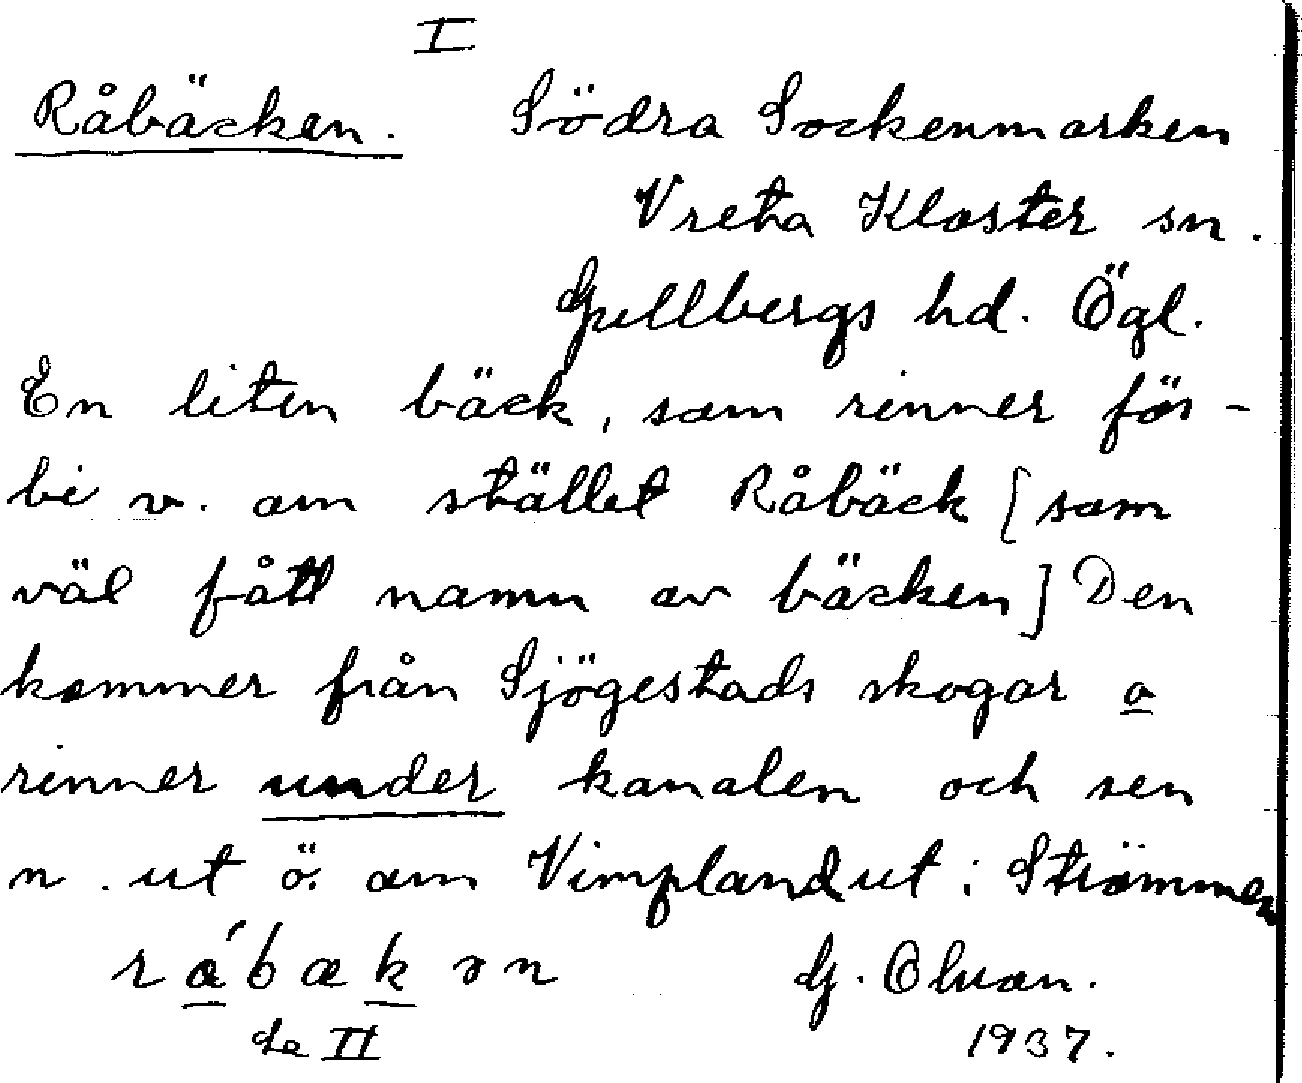 I
Råbäcken. Södra Sockenmarken
Vreta Kloster sn.
Gullbergs hd. Ögl.
En liten bäck, som rinner för-
bi v. om stället Råbäck [som
väl fått namn av bäcken] Den
kommer från Sjögestads skogar o
rinner under kanalen och sen
n. ut ö. om Vimpland ut i Strömmen
råbækən
Se II
1937.